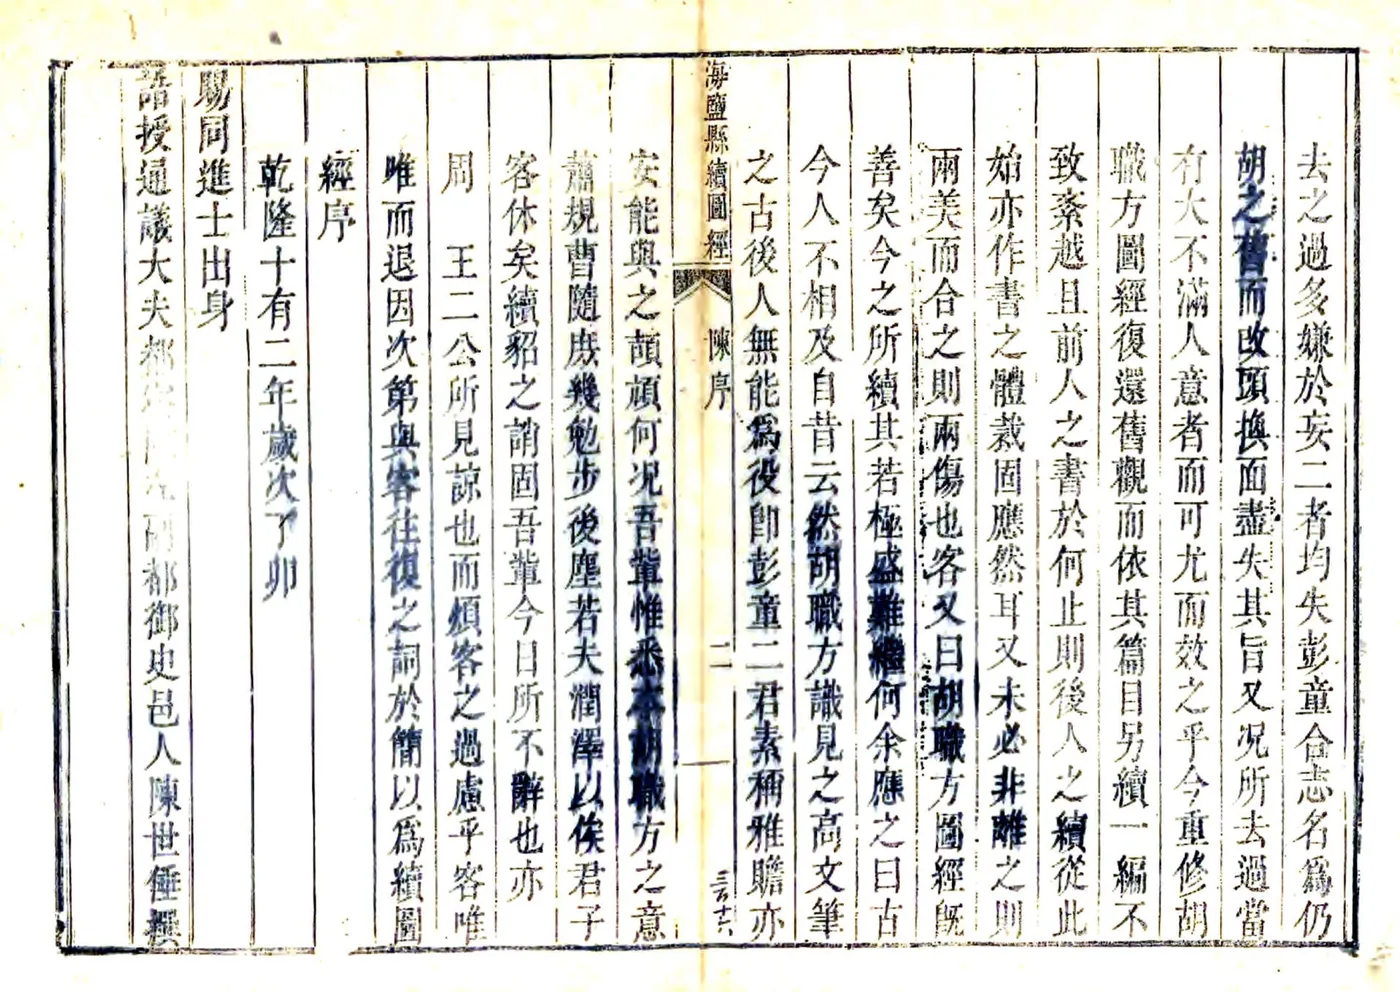 去之過多嫌於妄二者均失彭童合志名爲仍
胡之舊而改頭換面盡失其旨又况所去過當
有大不滿人意者而可尤而效之乎今重修胡
職方圖經復還舊觀而依其篇目另續一編不
致紊越且前人之書於何止則後人之續從此
始亦作書之體裁固應然耳又未必非離之則
兩美而合之則兩傷也客又曰胡職方圖經旣
善矣今之所續其若極盛難繼何余應之曰古
今人不相及自昔云然胡職方識見之高文筆
之古後人無能爲役卽彭童二君素稱雅贍亦
海鹽縣續圖經
陳序
二
三百十六
安能與之頡頏何况吾輩惟悉本胡職方之意
蕭規曹隨庶幾勉步後塵若夫潤澤以俟君子
客休矣續貂之誚固吾輩今日所不辭也亦
周 王二公所見諒也而煩客之過慮乎客唯
唯而退因次第與客往復之詞於簡以爲續圖
經序
乾隆十有二年歲次丁卯
賜同進士出身
誥授通議大夫都察院左副都御史邑人陳世倕撰